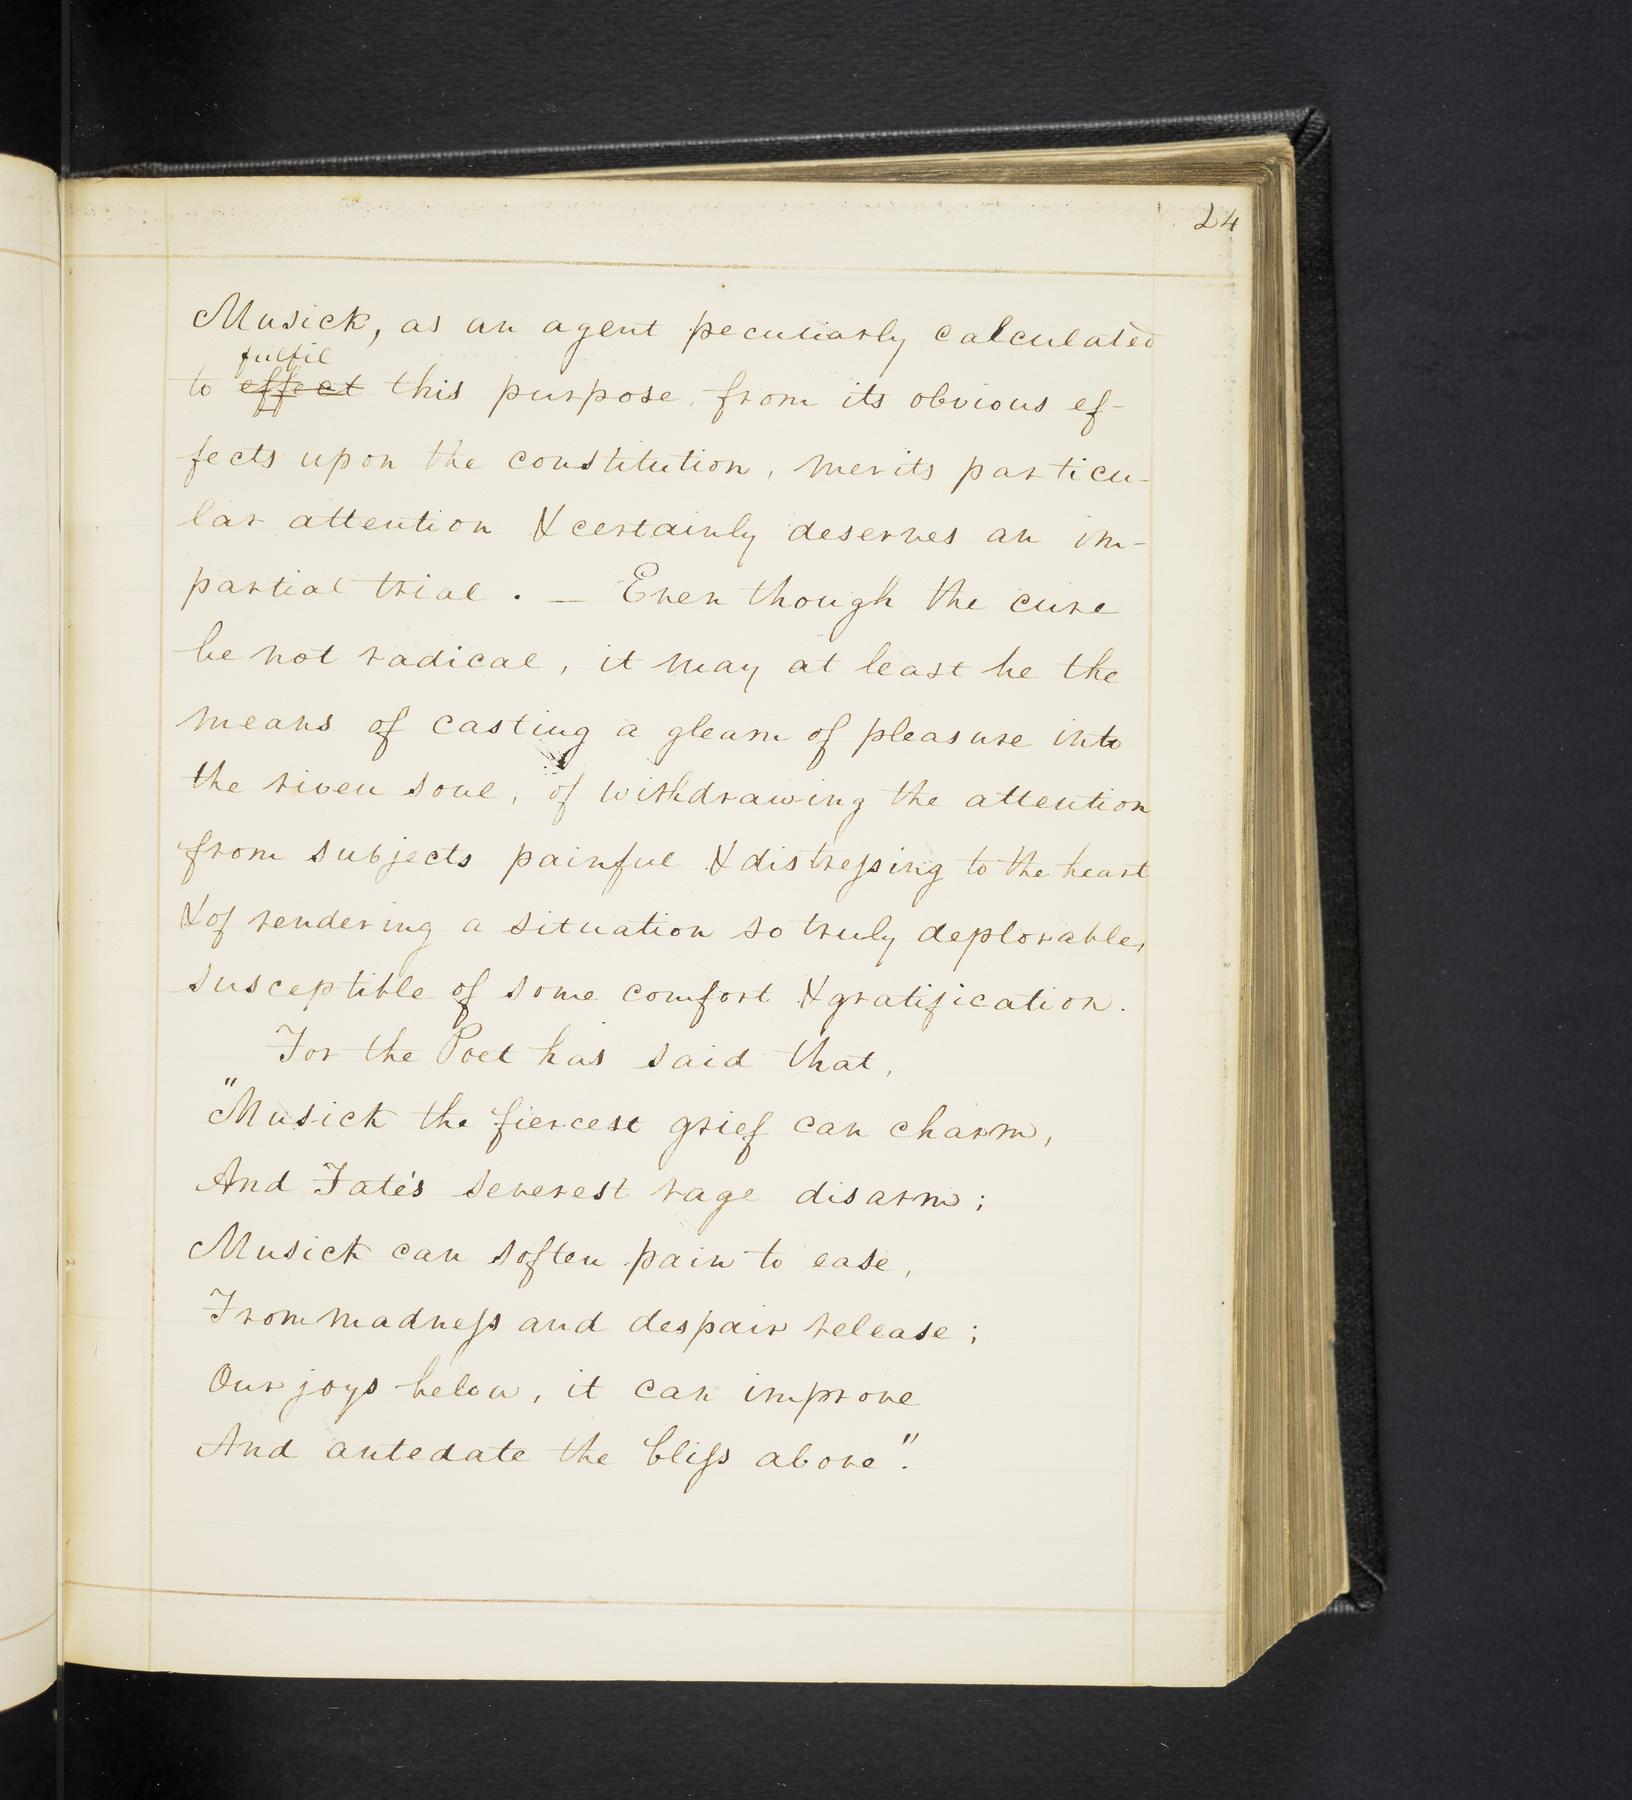 24
Musick, as an agent peculiarly calculated
fulfil
to effect this purpose, from its obvious ef-
fects upon the constitution, merits particu-
lar attention & certainly deserves an im-
partial trial. — Even though the cure
be not radical, it may at least be the
means of casting a gleam of pleasure into
the riven soul, of withdrawing the attention
from subjects painful & distressing to the heart
& of rendering a situation so truly deplorable,
susceptible of some comfort & gratification.
For the Poet has said that,
"Musick the fiercest grief can charm,
And Fate's severest rage disarm;
Musick can soften pain to ease,
From madness and despair release;
Our joys below, it can improve
And antedate the bliss above".